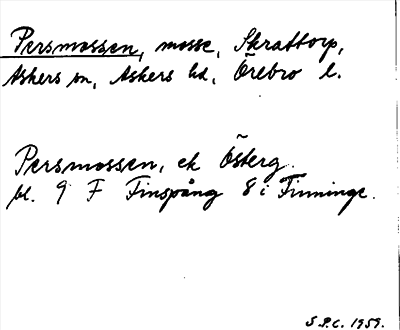 Persmossen, mosse, Skrattorp,
Askers sn, Askers hd, Örebro l.
Persmossen, ek Österg.
bl. 9 F Finspång 8 i Finninge.
S P.C. 1959.